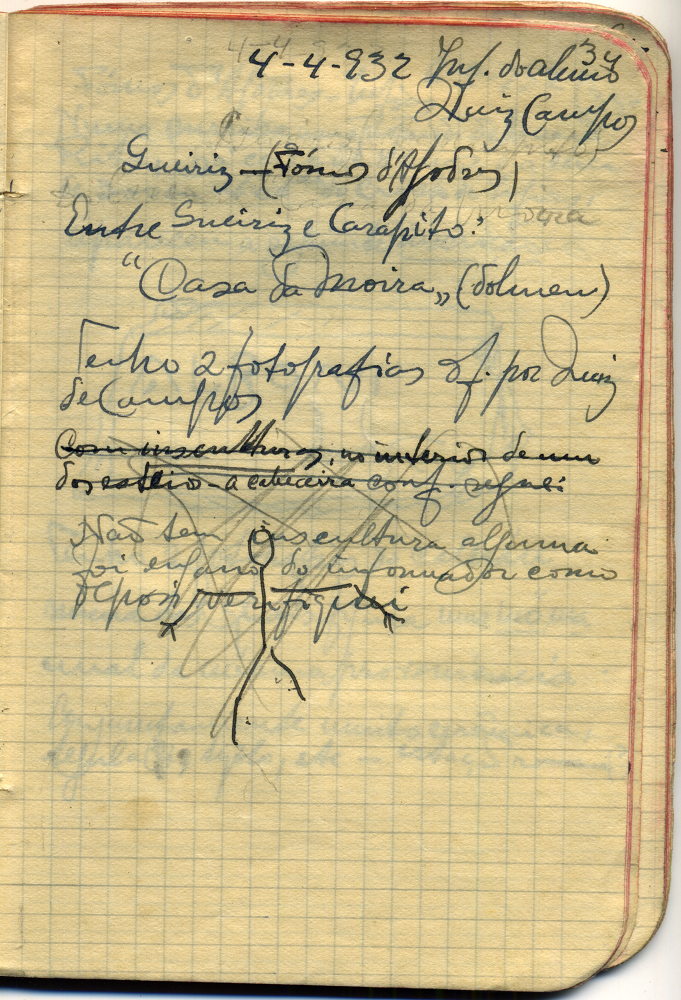 34
4-4-932 Inf. do aluno
Luiz Campos
Queiriz — (Fórnos d'Algodres)
Entre Queiriz e Carapito:
"Casa da Moira„ (dolmen)
Tenho 2 fotografias of. por Luiz
de Campos
Com insculturas, no interior de um
dos esteio - a cabeceira conf. segue:
Não tem inscultura alguma
foi engano do informador como
depois verifiquei